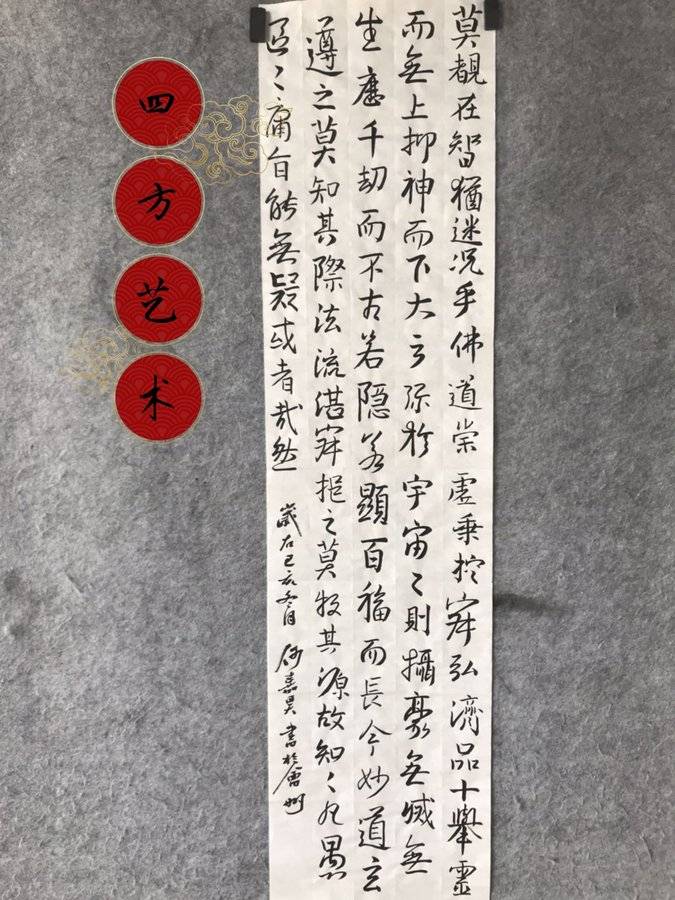 莫覩在智猶迷况乎佛道崇虚乗控寂弘濟品十舉靈
而無上抑神而下大之弥於宇宙〻則攝毫無滅無
生歷千劫而不古若隐若顯百福而長今妙道玄
遵之莫知其際法流湛寂挹之莫其源故知〻凡愚
區〻庸旨能無疑或者哉然 歲在己亥冬月 何嘉昊書於會州
四方艺术